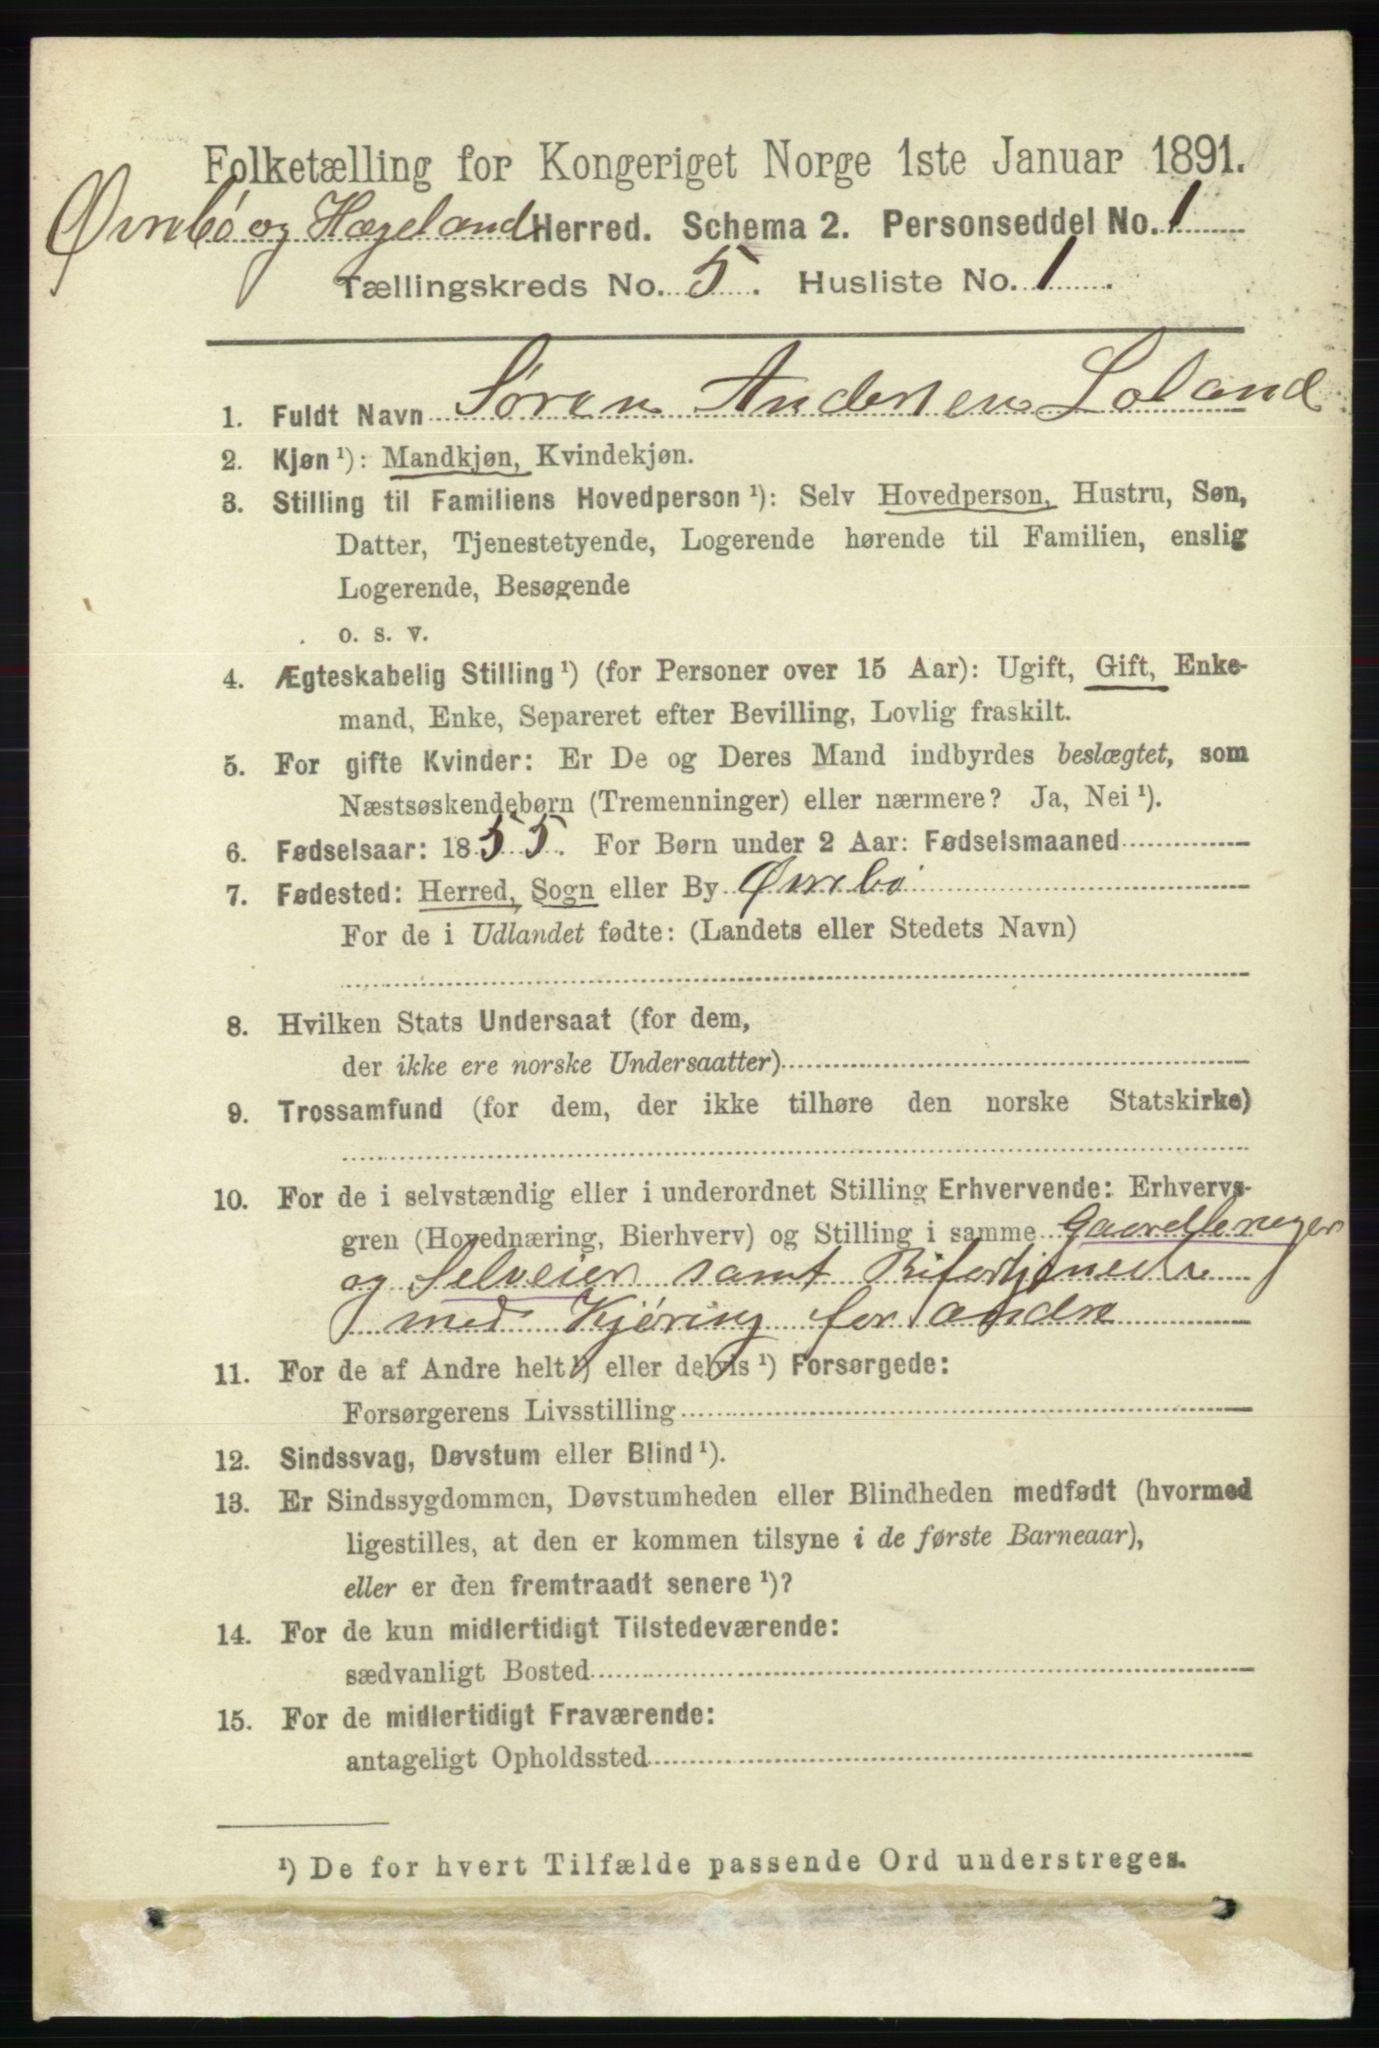 Folketælling for Kongeriget Norge 1ste Januar 1891.
Øvrebø og Hægeland Herred. Schema 2. Personseddel No. 1
Tællingskreds No. 5. Husliste No. 1.
1. Fuldt Navn Søren Andersen Loland
2. Kjøn ¹): Mandkjøn, Kvindekjøn.
3. Stilling til Familiens Hovedperson ¹): Selv Hovedperson, Hustru, Søn,
Datter, Tjenestetyende, Logerende hørende til Familien, enslig
Logerende, Besøgende
o. s. v.
4. Ægteskabelig Stilling ¹) (for Personer over 15 Aar): Ugift, Gift, Enke-
mand, Enke, Separeret efter Bevilling, Lovlig fraskilt.
5. For gifte Kvinder: Er De og Deres Mand indbyrdes beslægtet, som
Næstsøskendebørn (Tremenninger) eller nærmere? Ja, Nei ¹).
6. Fødselsaar: 1855. For Børn under 2 Aar: Fødselsmaaned
7. Fødested: Herred, Sogn eller By Øvrebø
For de i Udlandet fødte: (Landets eller Stedets Navn)
8. Hvilken Stats Undersaat (for dem,
der ikke ere norske Undersaatter)
9. Trossamfund (for dem, der ikke tilhøre den norske Statskirke)
10. For de i selvstændig eller i underordnet Stilling Erhvervende: Erhvervs-
gren (Hovednæring, Bierhverv) og Stilling i samme Gaardbruger
og Selveier samt Bifortjeneste
med Kjøring for andre
11. For de af Andre helt ¹) eller delvis ¹) Forsørgede:
Forsørgerens Livsstilling
12. Sindssvag, Døvstum eller Blind ¹).
13. Er Sindssygdommen, Døvstumheden eller Blindheden medfødt (hvormed
ligestilles, at den er kommen tilsyne i de første Barneaar),
eller er den fremtraadt senere ¹)?
14. For de kun midlertidigt Tilstedeværende:
sædvanligt Bosted
15. For de midlertidigt Fraværende:
antageligt Opholdssted
¹) De for hvert Tilfælde passende Ord understreges.